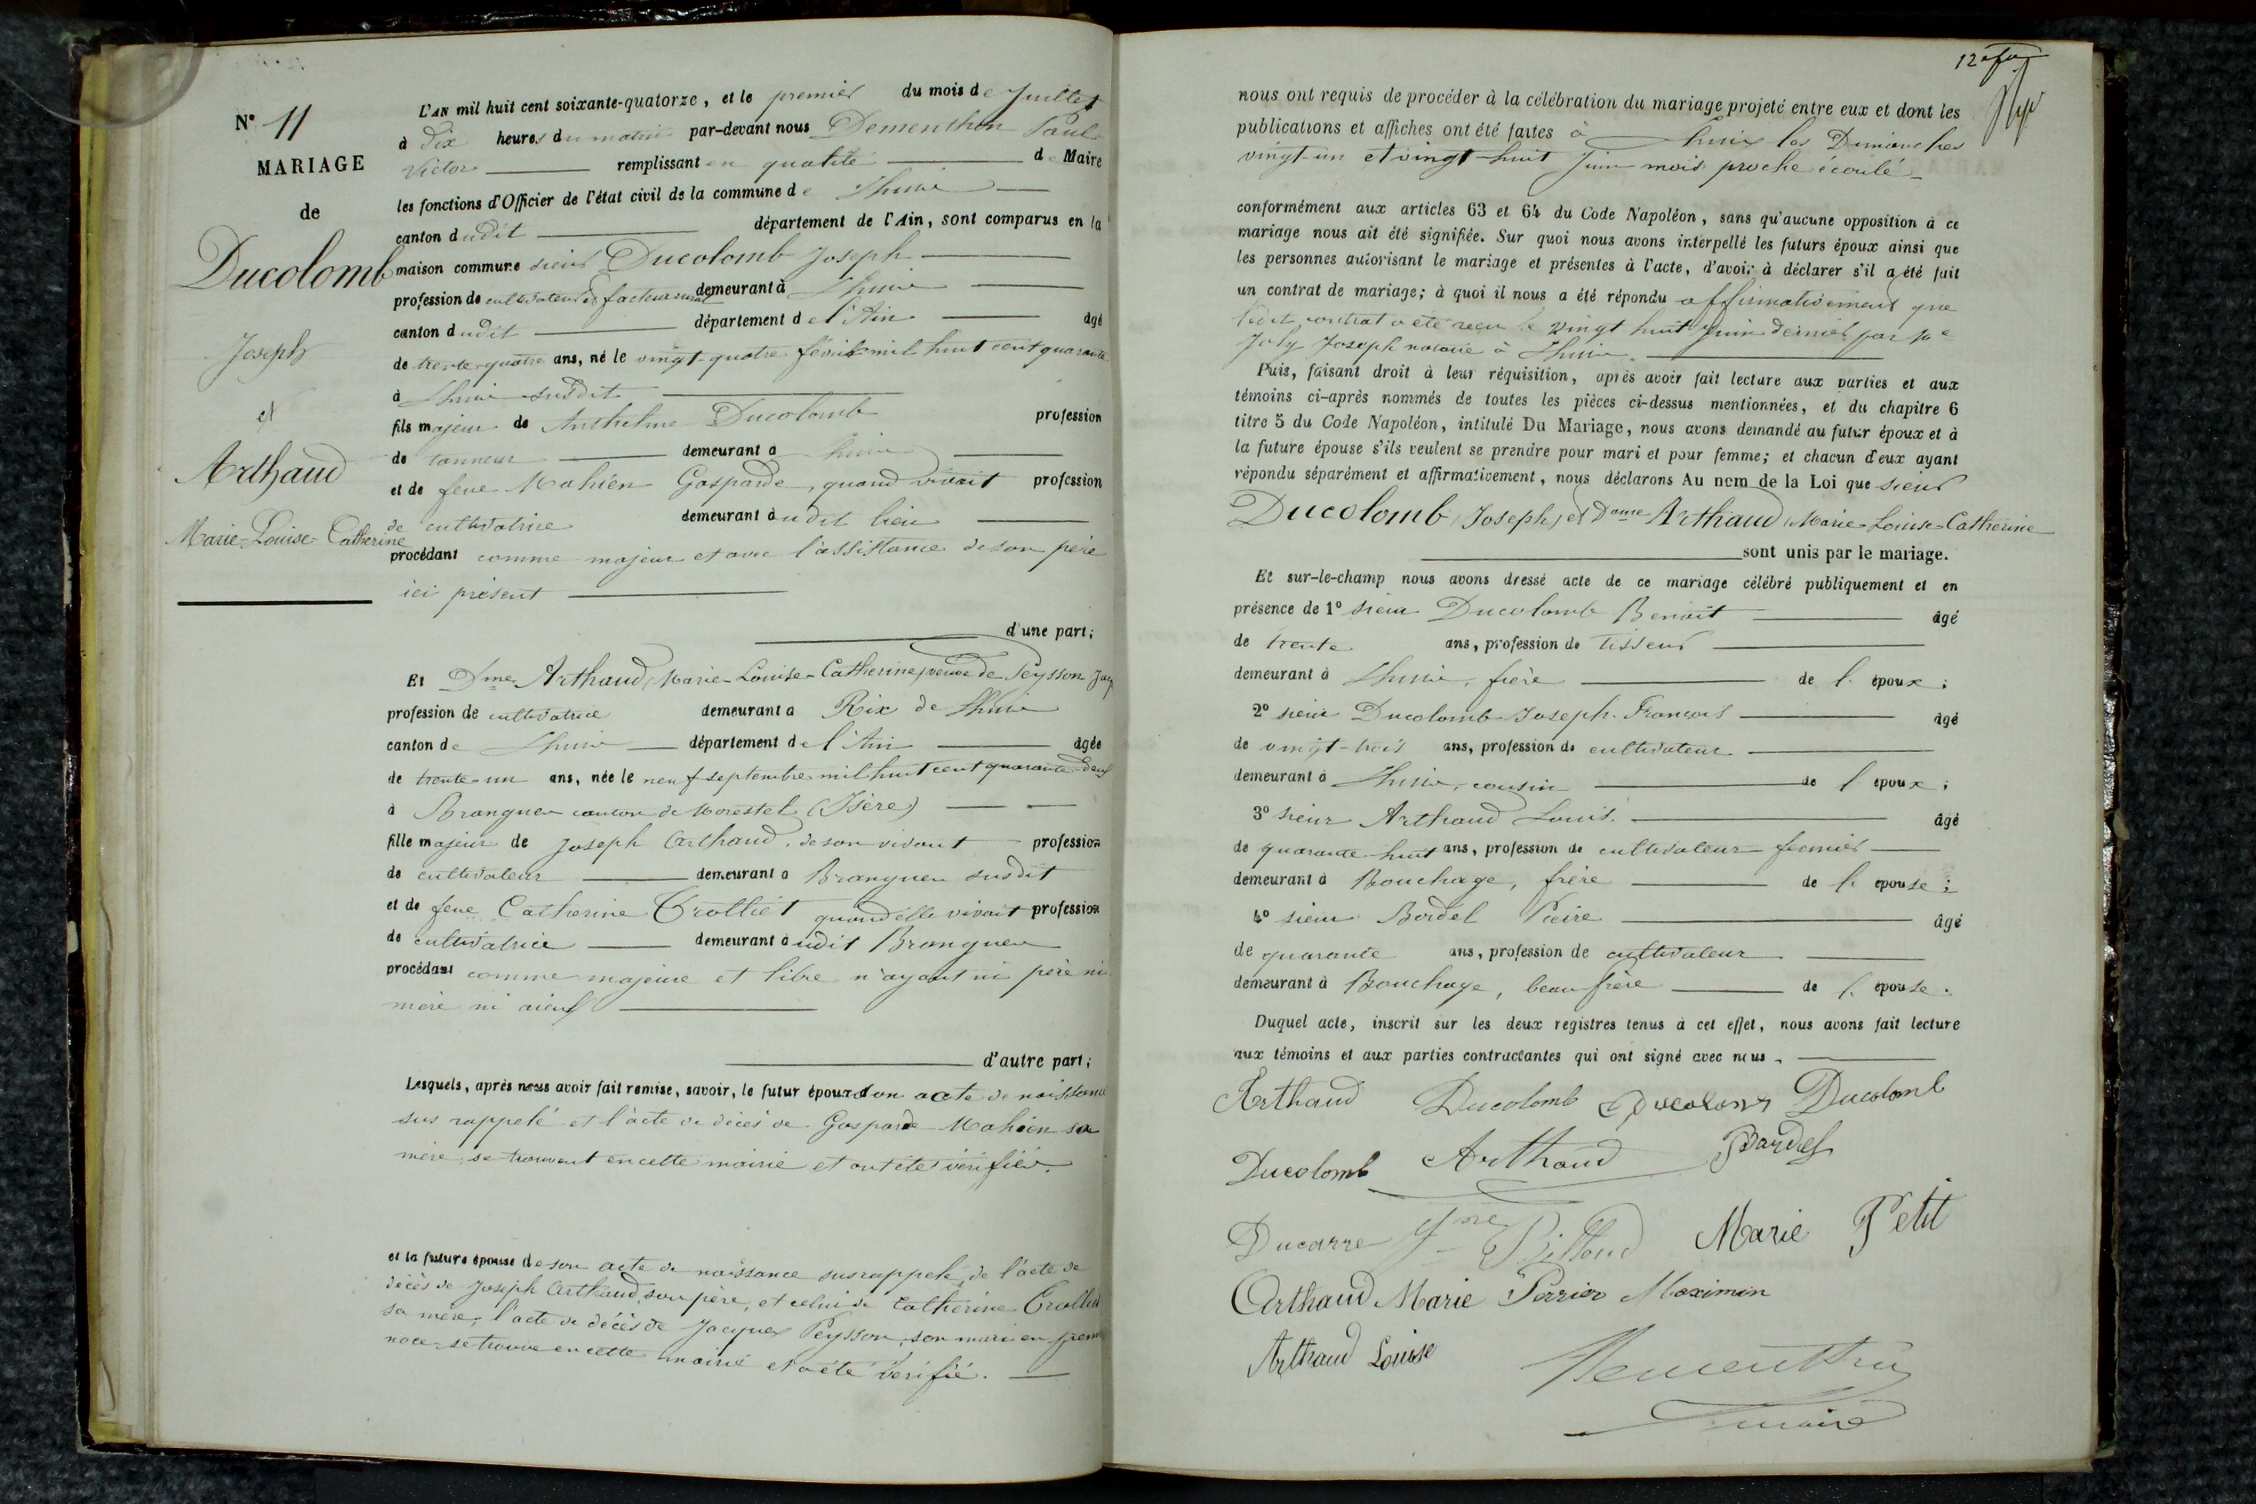 N° 11
MARIAGE
de
Ducolomb
Joseph
et
Arthaud
Marie-Louise-Catherine
L'AN mil huit cent soixante-quatorze, et le premier du mois de Juillet
à dix heures du matin par-devant nous Dementhon Paul
Victor remplissant en qualité de Maire
les fonctions d'Officier de l'état civil de la commune de Lhuis
canton dudit département de l'Ain, sont comparus en la
maison commune sieur Ducolomb Joseph
profession de cultivateur et facteur rural demeurant à Lhuis
canton dudit département de l'Ain âgé
de trente-quatre ans, né le vingt-quatre février mil huit cent quarante
à Lhuis susdit
fils majeur de Anthelme Ducolomb profession
de tanneur demeurant à Lhuis
et de feue Mahién Gasparde, quand vivait profession
de cultivatrice demeurant audit lieu
procédant comme majeur et avec l'assistance de son père
ici présent
d'une part;
Et Dme Arthaud Marie-Louise-Catherine, veuve de Peysson Jacq
profession de cultivatrice demeurant à Rix de Lhuis
canton de Lhuis département de l'Ain âgée
de trente-un ans, née le neuf septembre mil huit cent quarante-deux
à Brangues canton de Morestel (Isère)
fille majeur de Joseph Arthaud, de son vivant profession
de cultivateur demeurant à Brangues susdit
et de feue Catherine Trolliet quand elle vivait profession
de cultivatrice demeurant audit Brangues
procédant comme majeure et libre n'ayant ni père ni
mère ni aieul
d'autre part;
Lesquels, après nous avoir fait remise, savoir, le futur époux d'un acte de naissance
sus rappelé et l'acte de décès de Gasparde Mahién sa
mère, se trouvent en cette mairie et ont été vérifiés.
et la future épouse de son acte de naissance susrappelé, de l'acte de
décès de Joseph Arthaud, son père, et celui de Catherine Trolliet
sa mère; l'acte de décès de Jacques Peysson, son mari en prem
noce se trouve en cette mairie et a été vérifié.
nous ont requis de procéder à la célébration du mariage projeté entre eux et dont les
publications et affiches ont été faites à Lhuis les Dimanches
vingt-un et vingt-huit Juin mois proche écoulé
conformément aux articles 63 et 64 du Code Napoléon, sans qu'aucune opposition à ce
mariage nous ait été signifiée. Sur quoi nous avons interpellé les futurs époux ainsi que
les personnes autorisant le mariage et présentes à l'acte, d'avoir à déclarer s'il a été fait
un contrat de mariage; à quoi il nous a été répondu affirmativement que
ledit contrat a été reçu le vingt huit Juin dernier par Me
Joly Joseph notaire à Lhuis.
Puis, faisant droit à leur réquisition, après avoir fait lecture aux parties et aux
témoins ci-après nommés de toutes les pièces ci-dessus mentionnées, et du chapitre 6
titre 5 du Code Napoléon, intitulé Du Mariage, nous avons demandé au futur époux et à
la future épouse s'ils veulent se prendre pour mari et pour femme; et chacun d'eux ayant
répondu séparément et affirmativement, nous déclarons Au nom de la Loi que sieur
Ducolomb, Joseph, et Dame Arthaud, Marie-Louise-Catherine
sont unis par le mariage.
Et sur-le-champ nous avons dressé acte de ce mariage célébré publiquement et en
présence de 1° sieur Ducolomb Benoit âgé
de trente ans, profession de tisseur
demeurant à Lhuis, frère de l'époux;
2° sieur Ducolomb Joseph François âgé
de vingt-trois ans, profession de cultivateur
demeurant à Lhuis, cousin de l'époux;
3° sieur Arthaud Louis. âgé
de quarante-huit ans, profession de cultivateur fermier
demeurant à Bouchage, frère de l'épouse;
4° sieur Bordel Pierre âgé
de quarante ans, profession de cultivateur
demeurant à Bouchage, beau frère de l'épouse.
Duquel acte, inscrit sur les deux registres tenus à cet effet, nous avons fait lecture
aux témoins et aux parties contractantes qui ont signé avec nous.
Arthaud Ducolomb Ducolomb Ducolomb
Ducolomb Arthaud Bardel
Ducarre Billoud Marie Petit
Arthaud Marie Perrier Maximin
Arthaud Louise Dementhon
maire